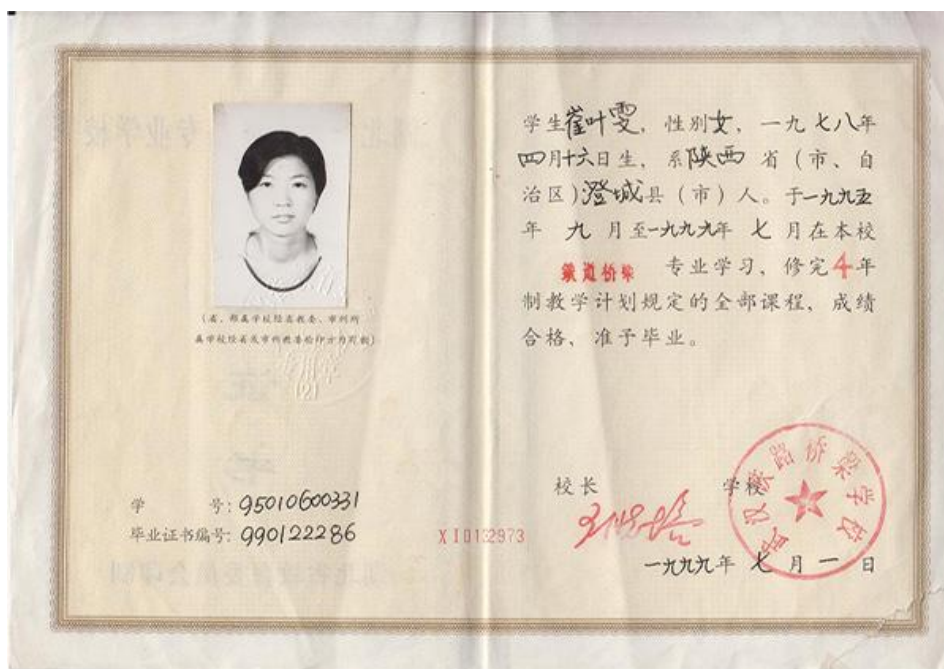 (省、部属学校经省教委、市州所
属学校经省或市州教委验印方为有效)
学 号:95010600331
毕业证书编号:990122286
X I0132973
学生崔叶雯,性别女,一九七八年
四月十六日生,系陕西省(市、自
治区)澄城县(市)人。于一九九五
年九月至一九九九年七月在本校
铁道桥梁 专业学习、修完4年
制教学计划规定的全部课程、成绩
合格、准予毕业。
校长 学校
武汉铁路桥梁学校
一九九九年七月一日